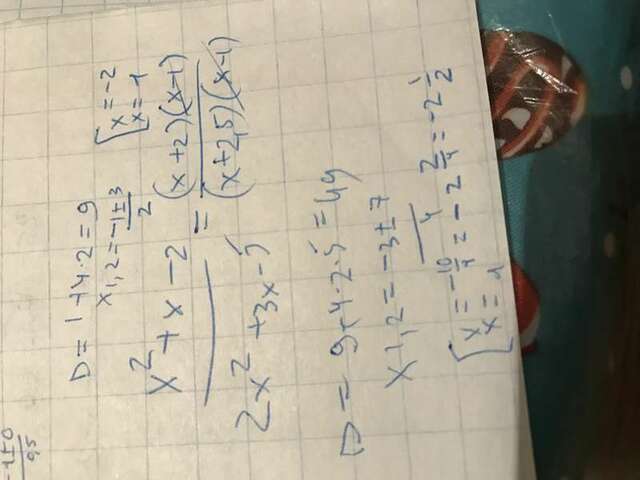 D = 1 + 4·2 = 9
x1,2 = -1±3 / 2
[ x = -2
x = 1
x² + x - 2 / 2x² + 3x - 5 = (x+2)(x-1) / (x+2,5)(x-1)
D = 9+4·2·5 = 49
x1,2 = -3±7 / 4
[ x = -10/4 = -2 2/4 = -2 1/2
x = 1
-1±0 / 0,5